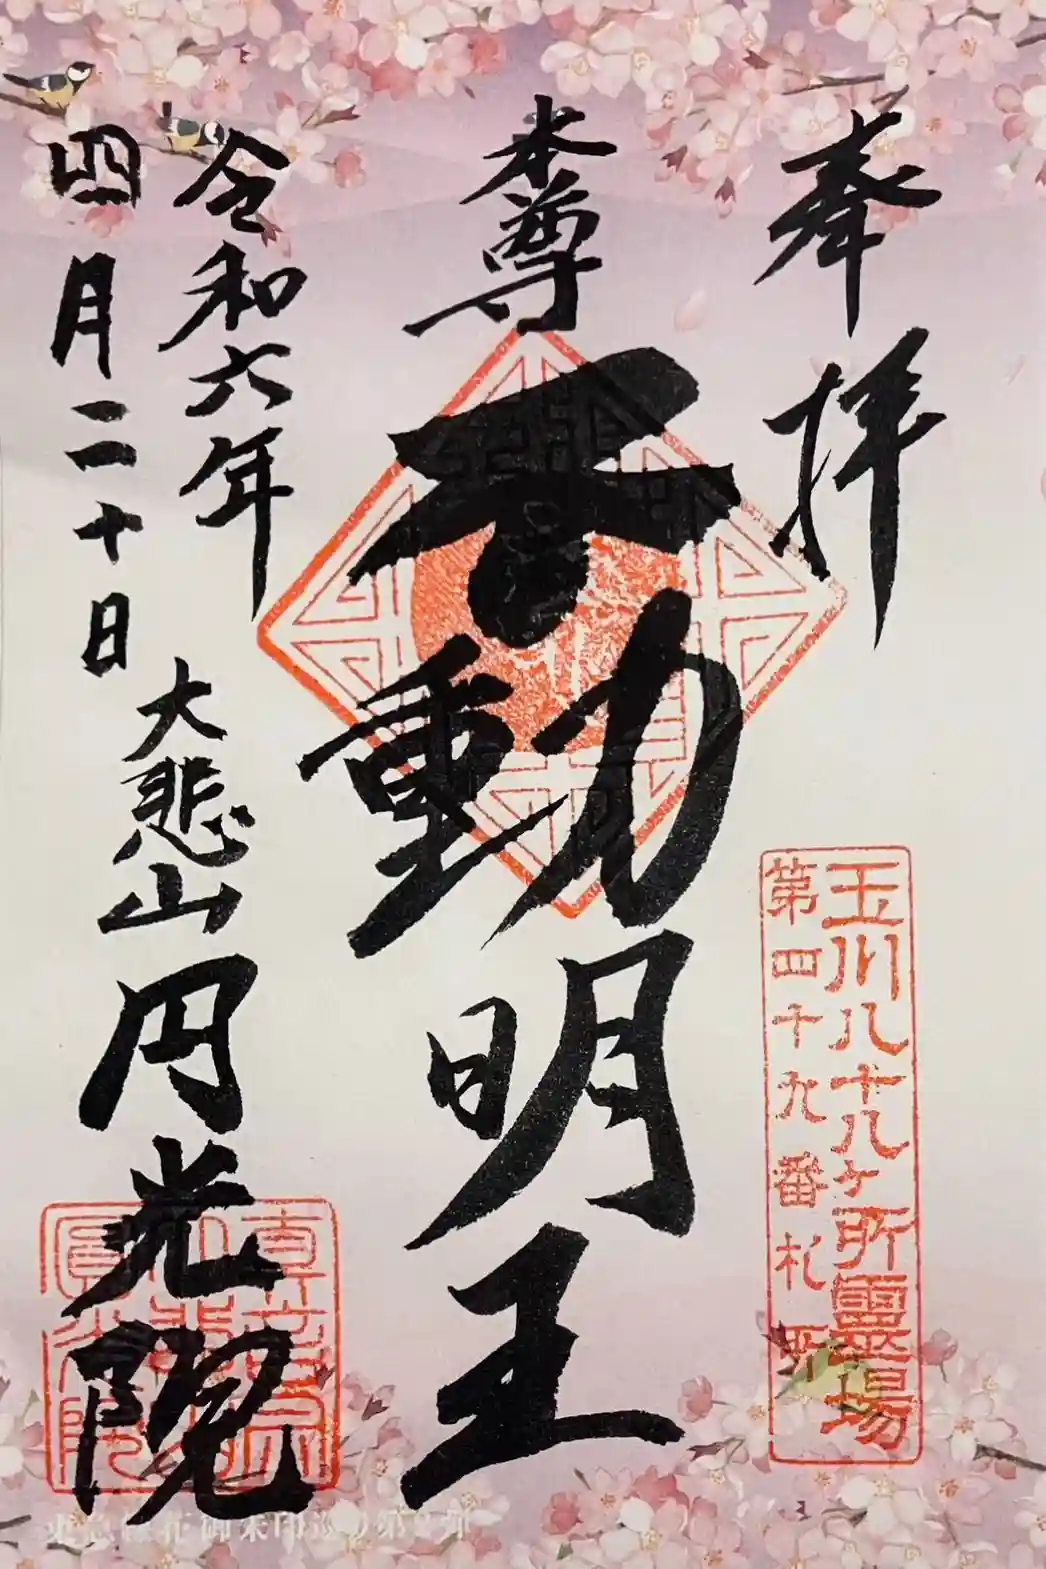 奉拝
玉川八十八ヶ所霊場
第四十九番札所
本尊
不動明王
令和六年
四月二十日
大悲山円光院